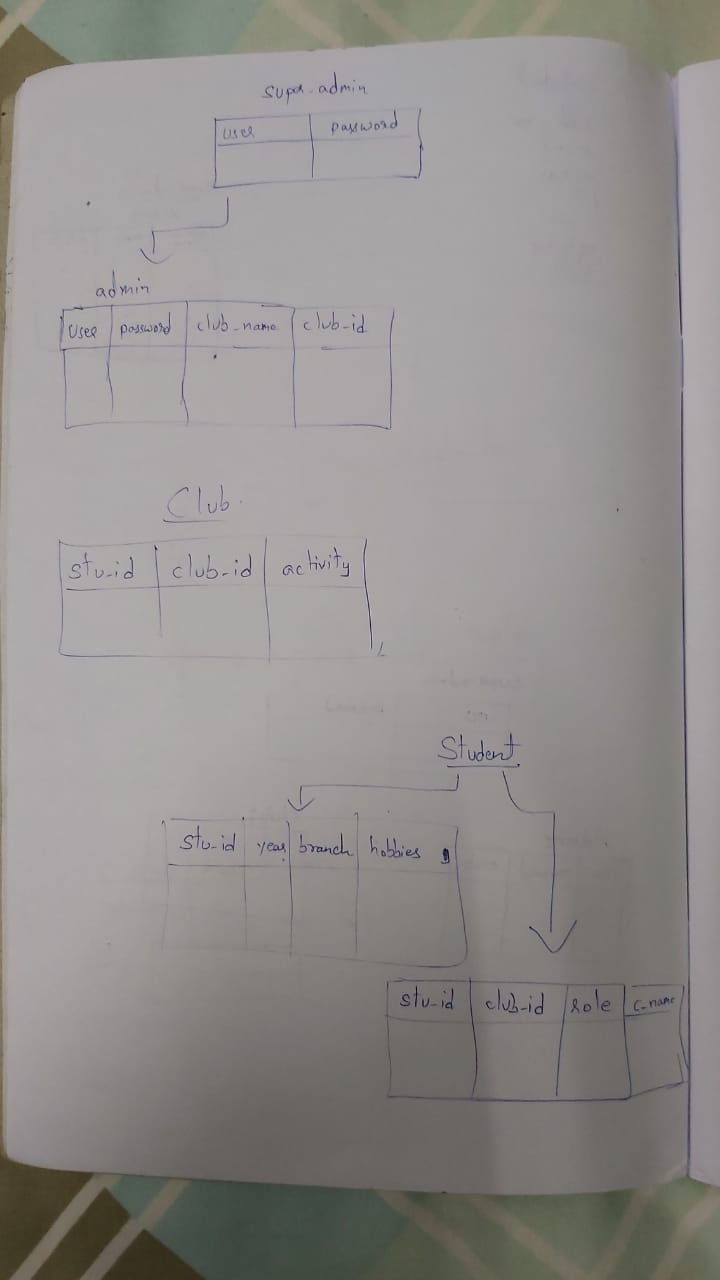 super-admin
user password
admin
user password club-name club-id
Club
stu-id club-id activity
Student
stu-id year branch hobbies
stu-id club-id role c-name